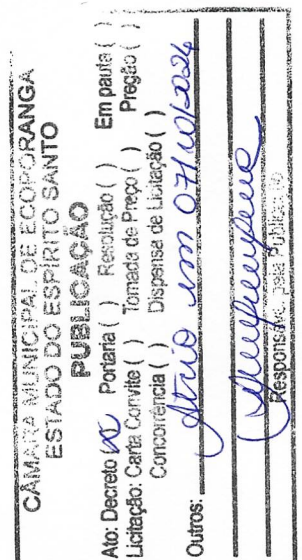 CÂMARA MUNICIPAL DE ECOPORANGA
ESTADO DO ESPÍRITO SANTO
PUBLICAÇÃO
Ato: Decreto (x) Portaria ( ) Resolução ( ) Em pauta ( )
Licitação: Carta Convite ( ) Tomada de Preço ( ) Pregão ( )
Concorrência ( ) Dispensa de Licitação ( )
Outros: Átrio em 07/10/2024
Responsável pela Publicação